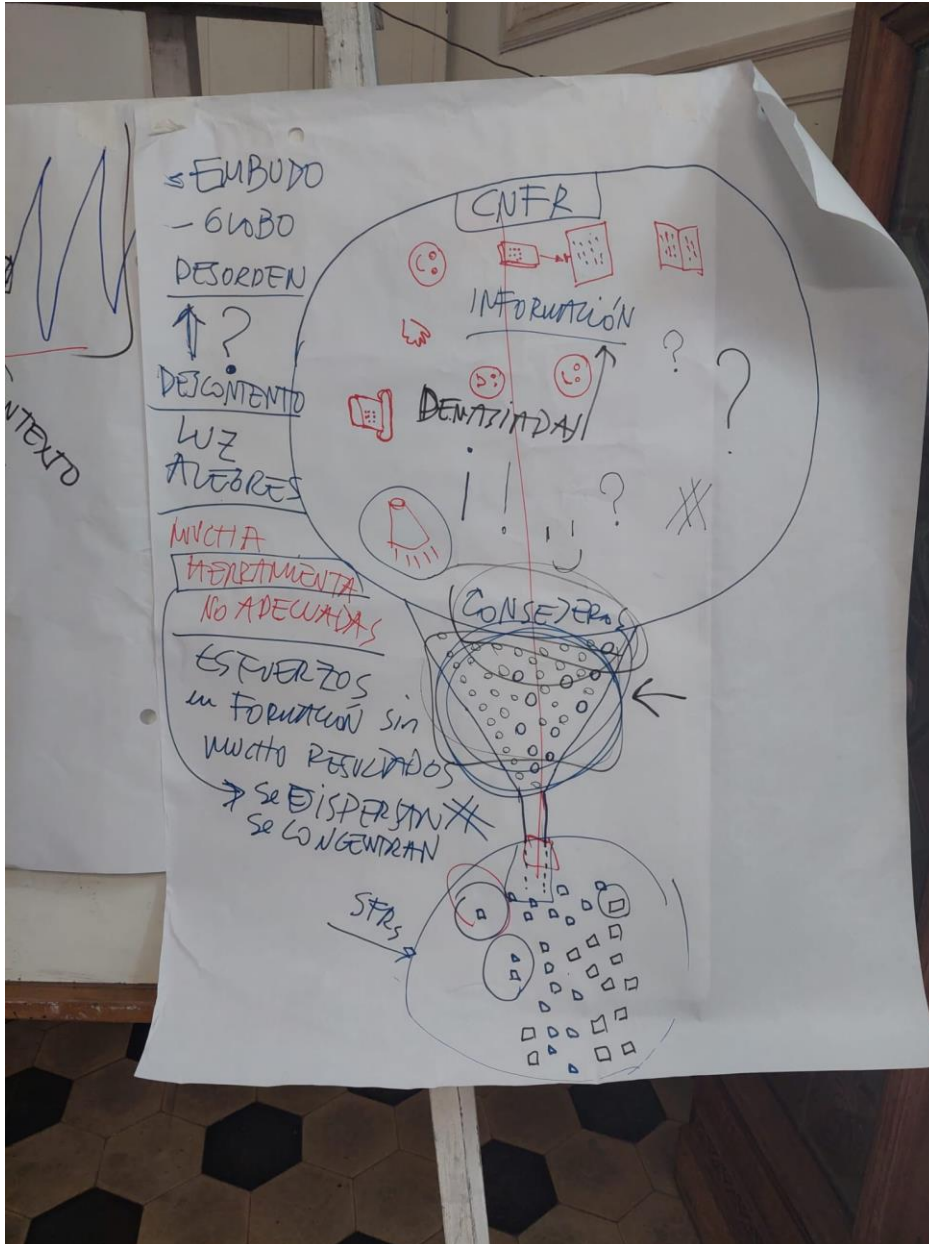 NTEXTO
- EMBUDO
- GLOBO
DESORDEN
↑ ?
DESCONTENTO
LUZ
ALEGRES
MUCHA
HERRAMIENTA
NO ADECUADAS
ESFUERZOS
en FORMACIÓN sin
MUCHO RESULTADOS
→ Se DISPERSAN
Se CONCENTRAN
SFRs
CNFR
INFORMACIÓN
? ?
DEMASIADAS
¡ ! ?
CONSEJEROS